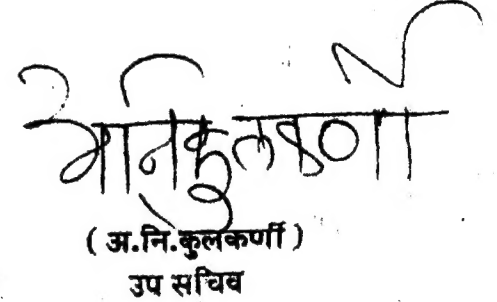 अनिकुलकर्णी
( अ.नि.कुलकर्णी )
उप सचिव